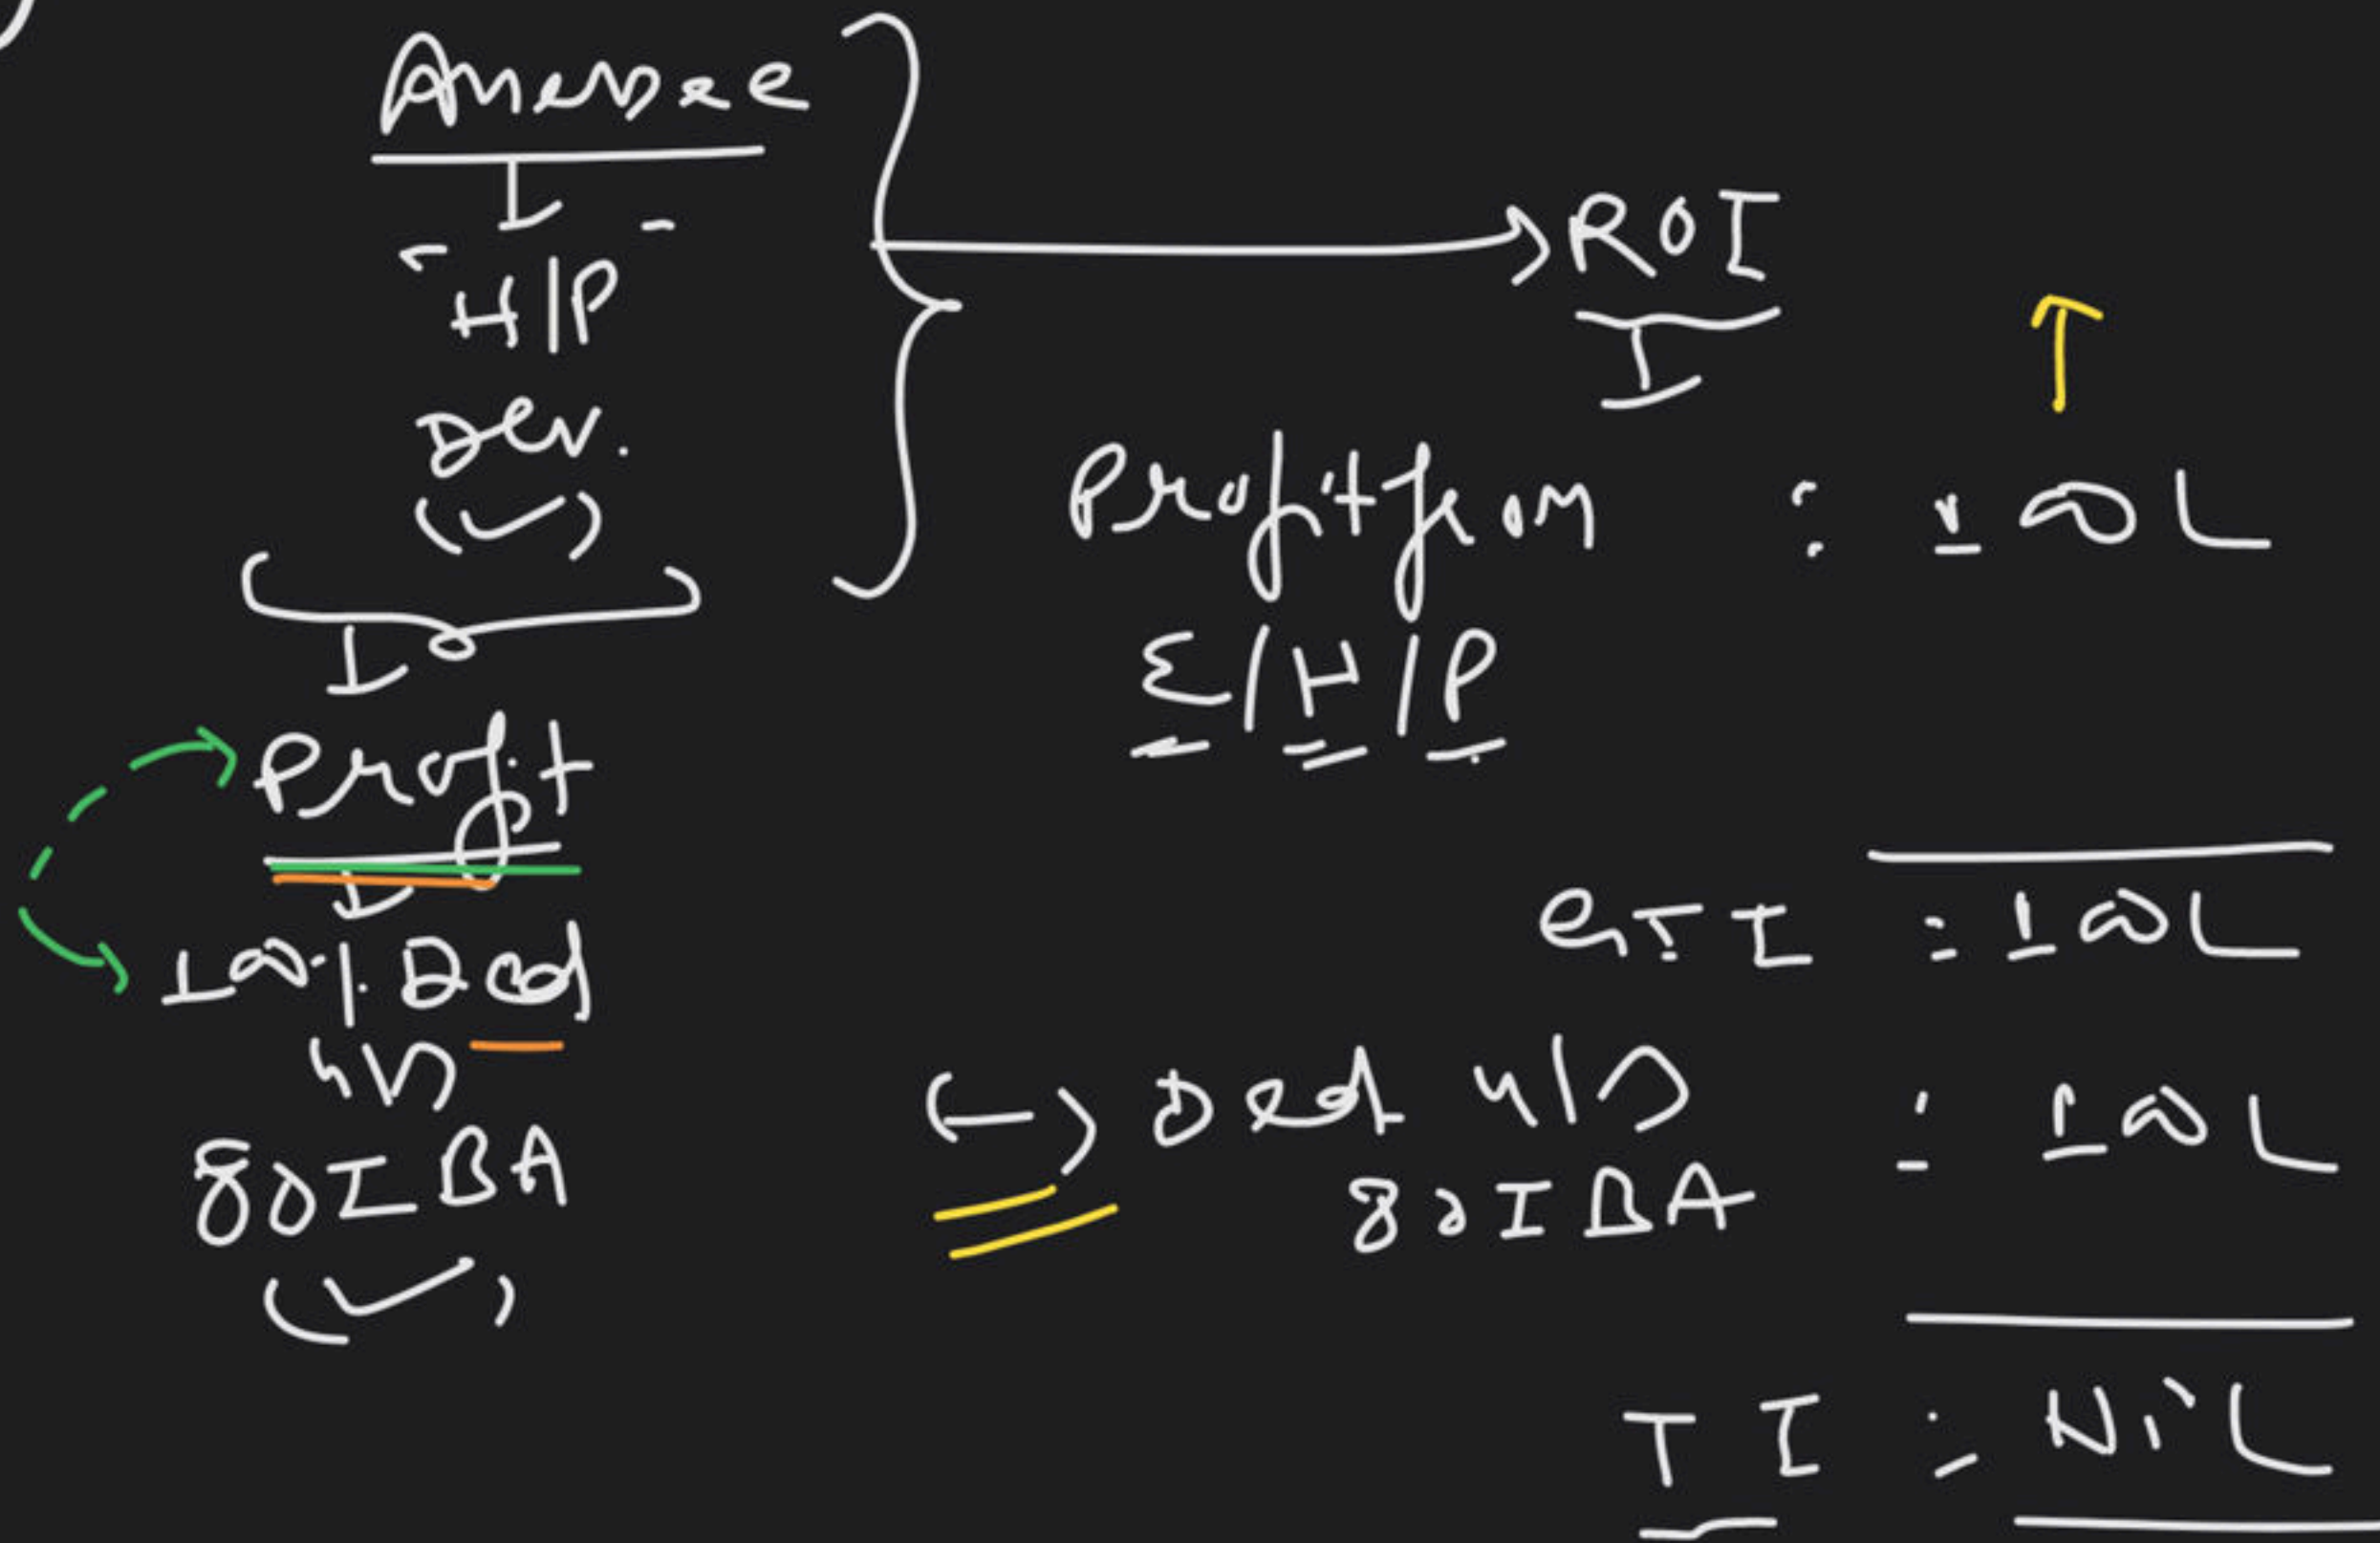 Assessee
H/P
Dev.
(✓)
Profit
100% Ded
u/s
80IBA
(✓)
ROI
Profit from : 100L
H/P
GTI : 100L
(-) Ded u/s : 100L
80IBA
TI : NiL